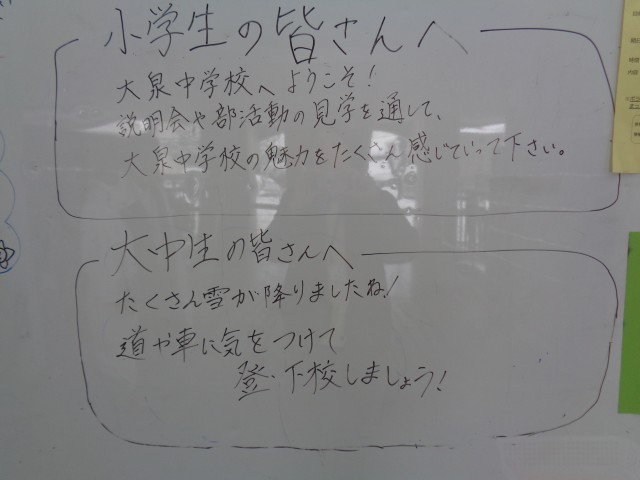 小学生の皆さんへ
大泉中学校へようこそ!
説明会や部活動の見学を通して、
大泉中学校の魅力をたくさん感じていって下さい。
大中生の皆さんへ
たくさん雪が降りましたね!
道や車に気をつけて
登・下校しましょう!